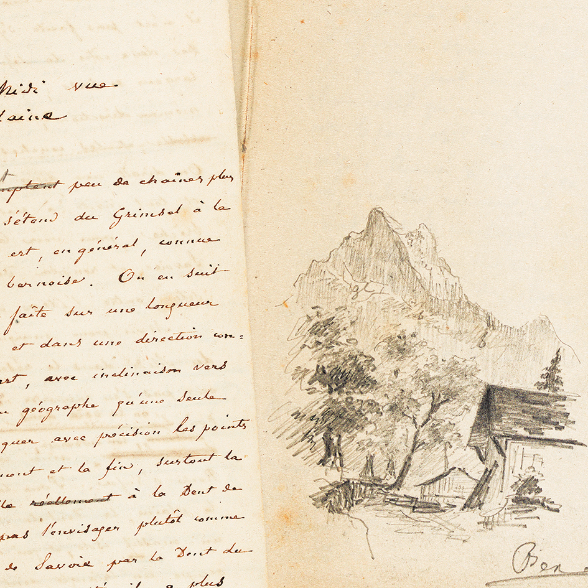 Midi vue
laine
peu de chaînes plus
s'étend du Grimsel à la
est, en général, connue
bernoise. On en suit
faîte sur une longueur
et dans une direction con=
avec inclinaison vers
géographe qu'une seule
quer avec précision les points
mont et la fin, surtout la
réellement à la Dent de
pas l'envisager plutôt comme
de Savoie par la Dent du
plus